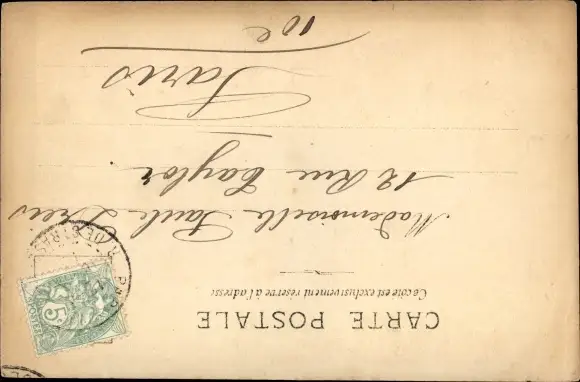 CARTE POSTALE
Ce côté est exclusivement réservé à l'adresse
Mademoiselle Paule
12 Rue Taylor
Paris
10e
5